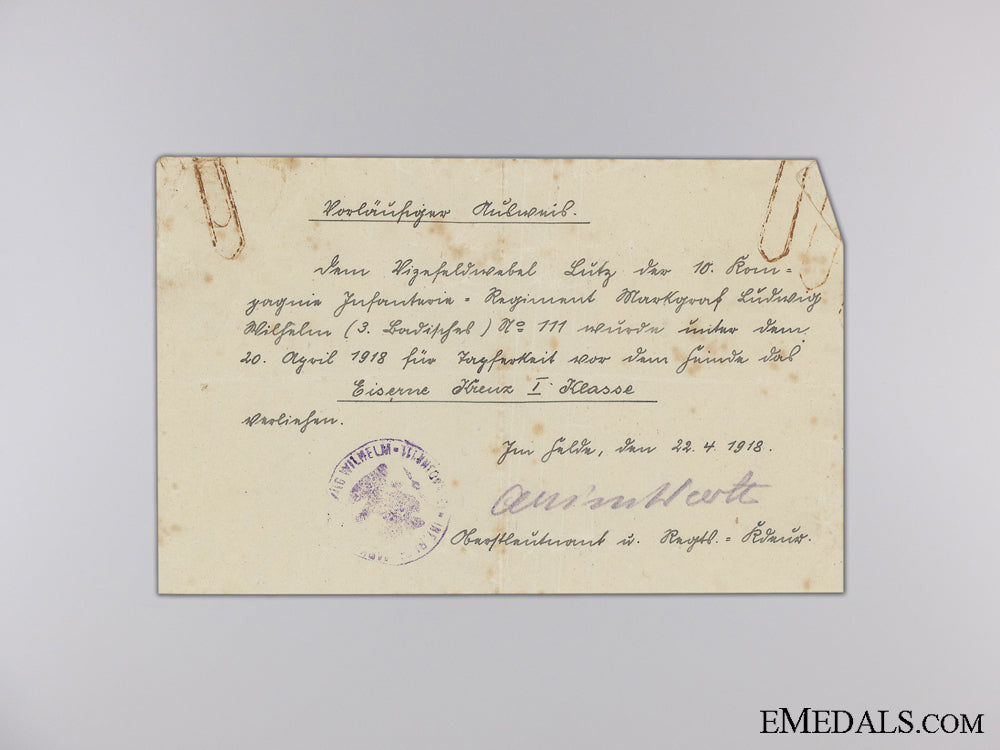 Vorläufiger Ausweis.
Dem Vizefeldwebel Lutz der 10. Kom=
pagnie Infanterie=Regiment Markgraf Ludwig
Wilhelm (3. Badisches) No 111 wurde unter dem
20. April 1918 für Tapferkeit vor dem Feinde das
Eiserne Kreuz I. Klasse
verliehen.
Im Felde, den 22.4.1918.
WILHELM
Oberstleutnant u. Regts.=Kdeur.
EMEDALS.COM